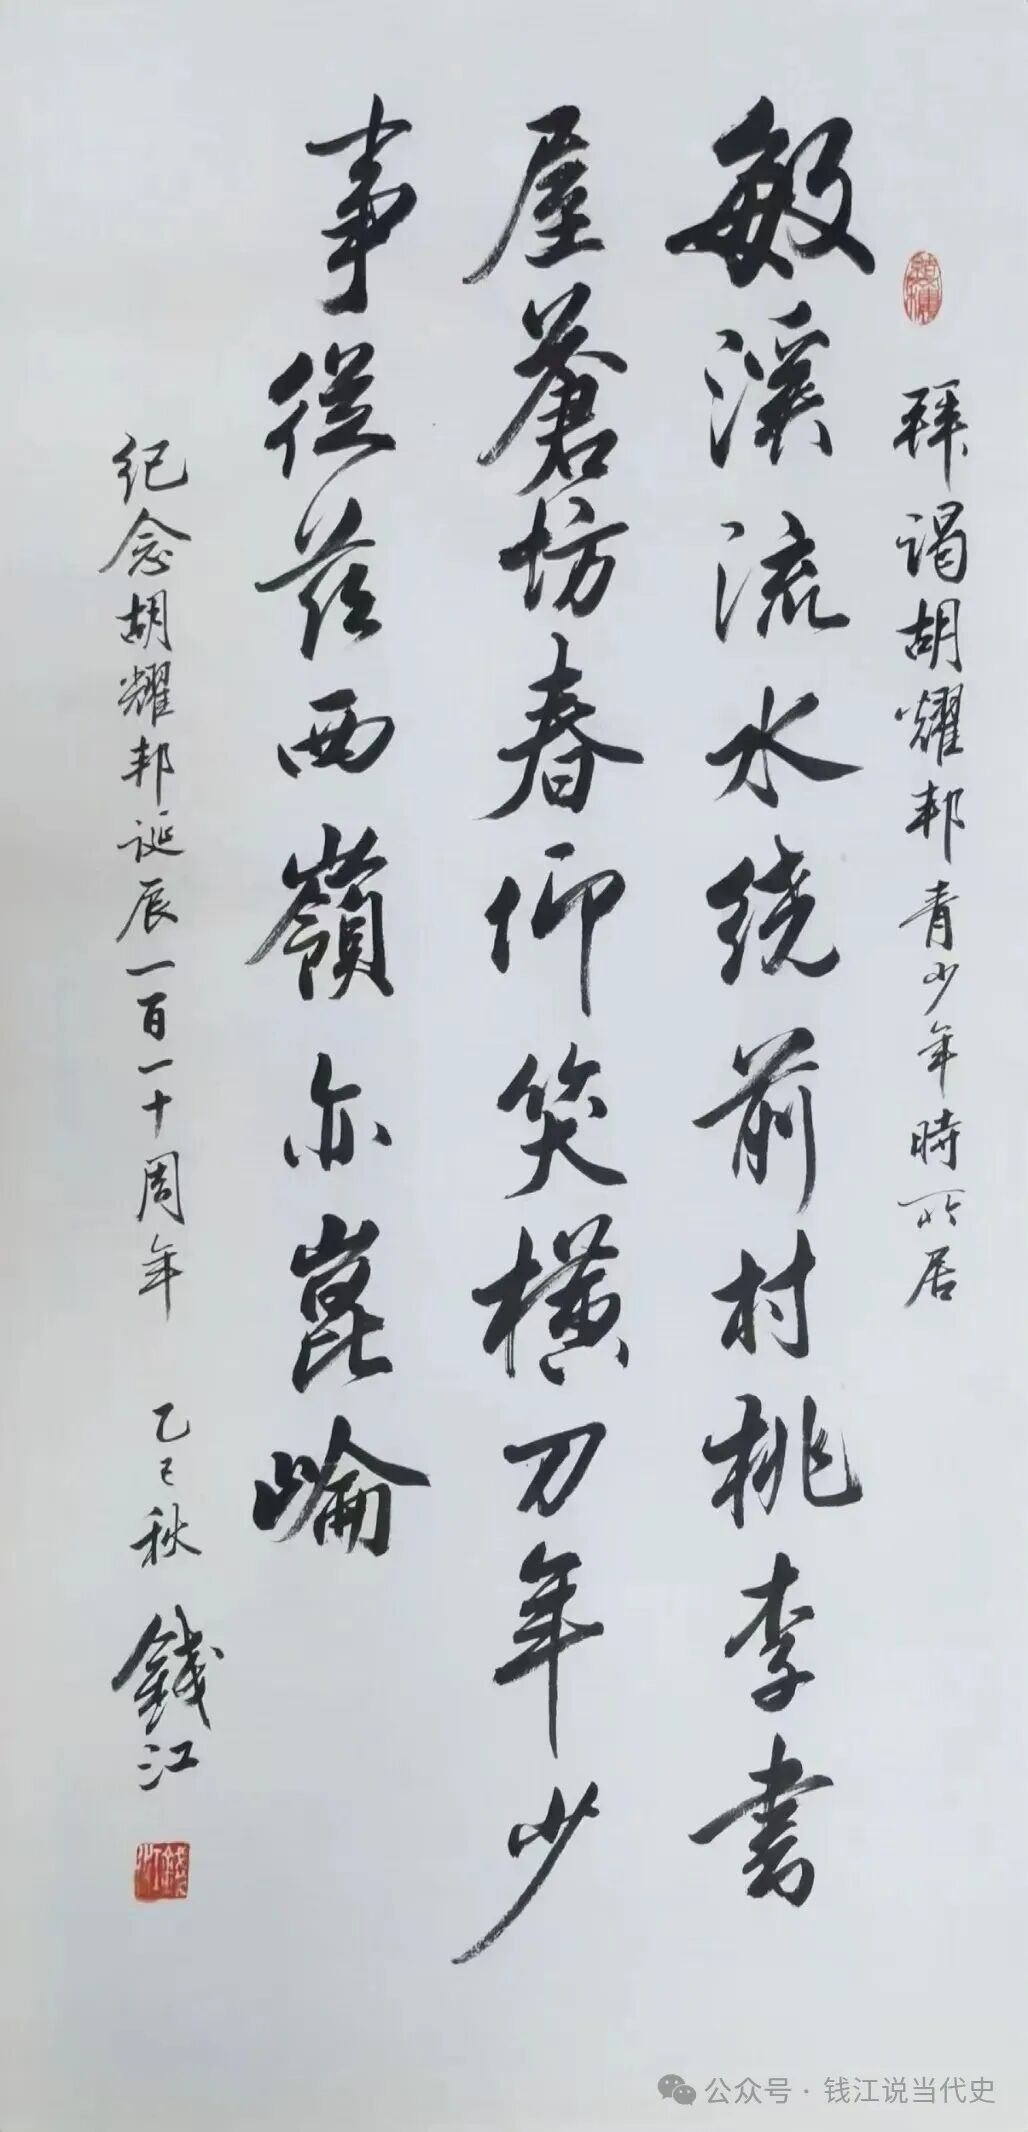 拜谒胡耀邦青少年時所居
敏溪流水绕前村桃李书
屋蒼坊春仰笑横刀年少
事從兹西嶺亦崑崙
纪念胡耀邦诞辰一百一十周年 乙巳秋 錢江
錢江
公众号·钱江说当代史